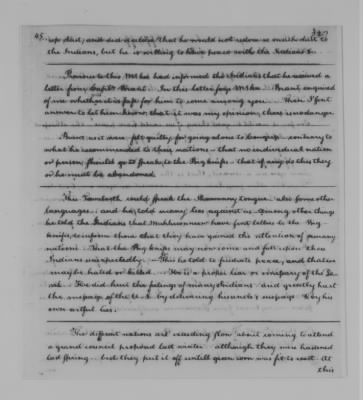 45.
up dust, and did declare that he would not restore so much dust to
the Indians, but he is willing to have peace with the Indians &c
Previous to this, Mr. had informed the Indians that he received a
letter from Capt. Brant. In this letter says
of me whether it is safe for him to come among you. Then I sent
answer to let him know, that it was my opinion, there is no danger
Brant not over felt guilty for going alone to Congress, contrary to
what he recommended to these nations – that no individual nation
or person, should go to speak to the Big knifes – that if any do thus they
or he must be abandoned
This could speak the Shawanny tongue – also some other
languages – and has told many lies against us. Among other things
he told the Indians that Muhheconneew have sent letters to the Big
knifes, to inform them that they have gained the attention of so many
nations. That the Big knifes may now come and fall upon these
Indians unexpectedly. This he told to frustrate peace, and that we
may be hated or killed. He is a proper liar or emissary of the De-
vil. He did hurt the feelings of many Indians – and greatly hurt
the message of the U.S. by delivering message by his
own artful lies.
The different nations are exceeding slow about coming to attend
a grand council proposed last winter – although they were hastened
last Spring – but they put it off until green corn was fit to eat. At
this